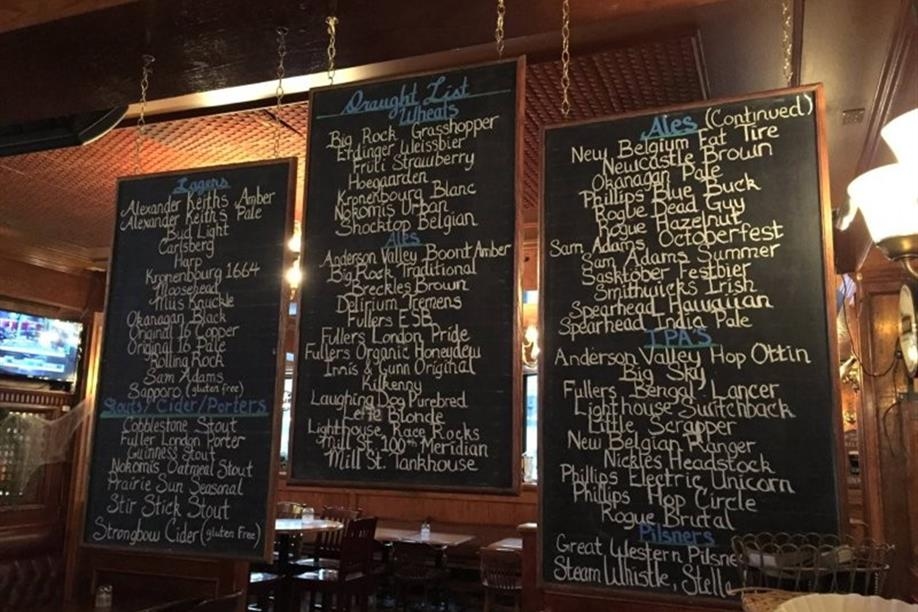 Lagers
Alexander Keiths Amber
Alexander Keiths Pale
Bud Light
Carlsberg
Harp
Kronenbourg 1664
Moosehead
Mus Knuckle
Okanagan Black
Original 16 Copper
Original 16 Pale
Rolling Rock
Sam Adams
Sapporo (gluten Free)
Stouts/Cider/Porters
Cobblestone Stout
Fuller London Porter
Guinness Stout
Nokomis Oatmeal Stout
Prairie Sun Seasonal
Stir Stick Stout
Strongbow Cider (gluten Free)
Draught List
Wheats
Big Rock Grasshopper
Erdinger Weissbier
Fruli Strawberry
Hoegaarden
Kronenbourg Blanc
Nokomis Urban
Shocktop Belgian
Ales
Anderson Valley Boont Amber
Big Rock Traditional
Breckles Brown
Delirium Tremens
Fullers ESB
Fullers London Pride
Fullers Organic Honeydew
Innis & Gunn Original
Kilkenny
Laughing Dog Purebred
Leffe Blonde
Lighthouse Race Rocks
Mill St. 100th Meridian
Mill St. Tankhouse
Ales (Continued)
New Belgium Fat Tire
Newcastle Brown
Okanagan Pale
Phillips Blue Buck
Rogue Dead Guy
Rogue Hazelnut
Sam Adams Octoberfest
Sam Adams Summer
Sasktober Festbier
Smithwicks Irish
Spearhead Hawaiian
Spearhead India Pale
IPAS
Anderson Valley Hop Ottin
Big Sky
Fullers Bengal Lancer
Lighthouse Switchback
Little Scrapper
New Belgian Ranger
Nickles Headstock
Phillips Electric Unicorn
Phillips Hop Circle
Rogue Brutal
Pilsners
Great Western Pilsne
Steam Whistle, Stell